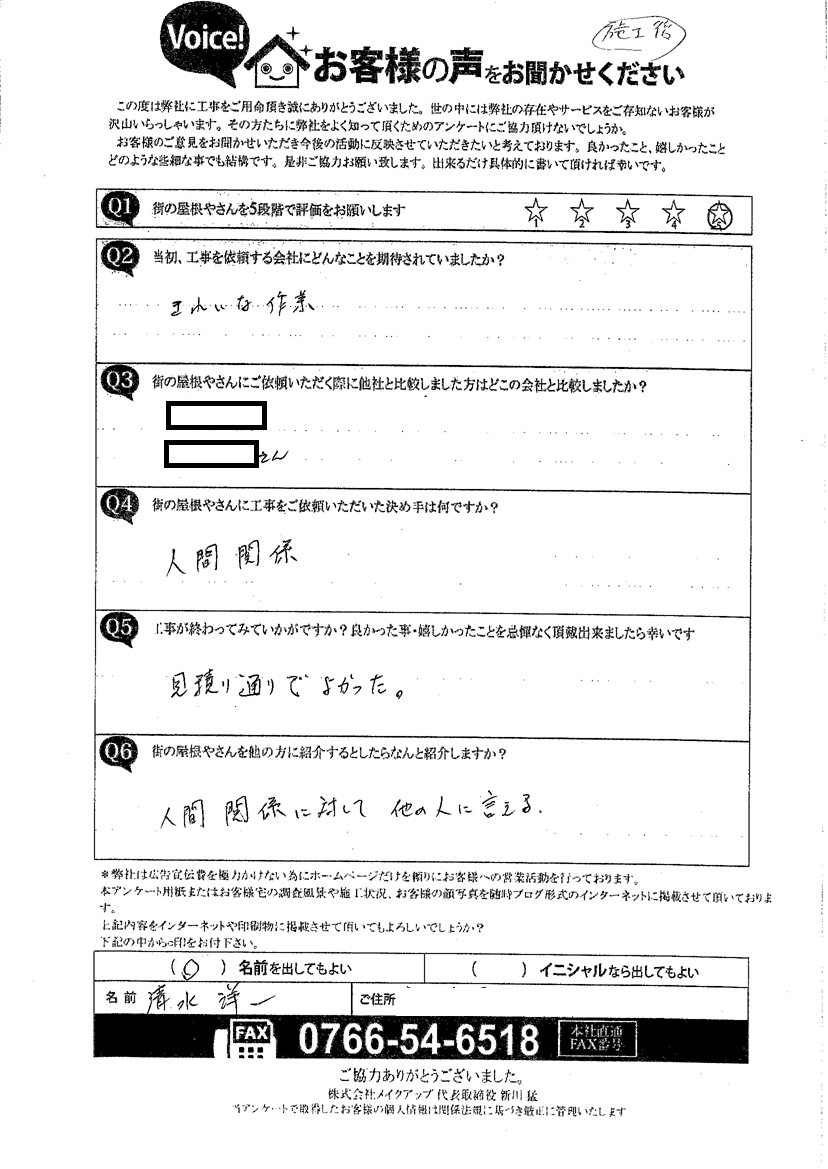 Voice!
施工後
お客様の声をお聞かせください
この度は弊社に工事をご用命頂き誠にありがとうございました。世の中には弊社の存在やサービスをご存知ないお客様が
沢山いらっしゃいます。その方たちに弊社をよく知って頂くためのアンケートにご協力頂けないでしょうか。
お客様のご意見をお聞かせいただき今後の活動に反映させていただきたいと考えております。良かったこと、嬉しかったこと
どのような些細な事でも結構です。是非ご協力お願い致します。出来るだけ具体的に書いて頂ければ幸いです。
Q1 街の屋根やさんを5段階で評価をお願いします
1 2 3 4 5
Q2 当初、工事を依頼する会社にどんなことを期待されていましたか？
きれいな作業
Q3 街の屋根やさんにご依頼いただく際に他社と比較しました方はどこの会社と比較しましたか？
さん
Q4 街の屋根やさんに工事をご依頼いただいた決め手は何ですか？
人間関係
Q5 工事が終わってみていかがですか？良かった事・嬉しかったことを忌憚なく頂戴出来ましたら幸いです
見積り通りでよかった。
Q6 街の屋根やさんを他の方に紹介するとしたらなんと紹介しますか？
人間関係に対して他の人に言える.
＊弊社は広告宣伝費を極力かけない為にホームページだけを頼りにお客様への営業活動を行っております。
本アンケート用紙またはお客様宅の調査風景や施工状況、お客様の顔写真を随時ブログ形式のインターネットに掲載させて頂いておりま
す。
上記内容をインターネットや印刷物に掲載させて頂いてもよろしいでしょうか？
下記の中から○印をお付下さい。
（○）名前を出してもよい （ ）イニシャルなら出してもよい
名前 清水洋一 ご住所
FAX 0766-54-6518 本社直通
FAX番号
ご協力ありがとうございました。
株式会社メイクアップ 代表取締役 新川 猛
当アンケートで取得したお客様の個人情報は関係法規に基づき厳正に管理いたします